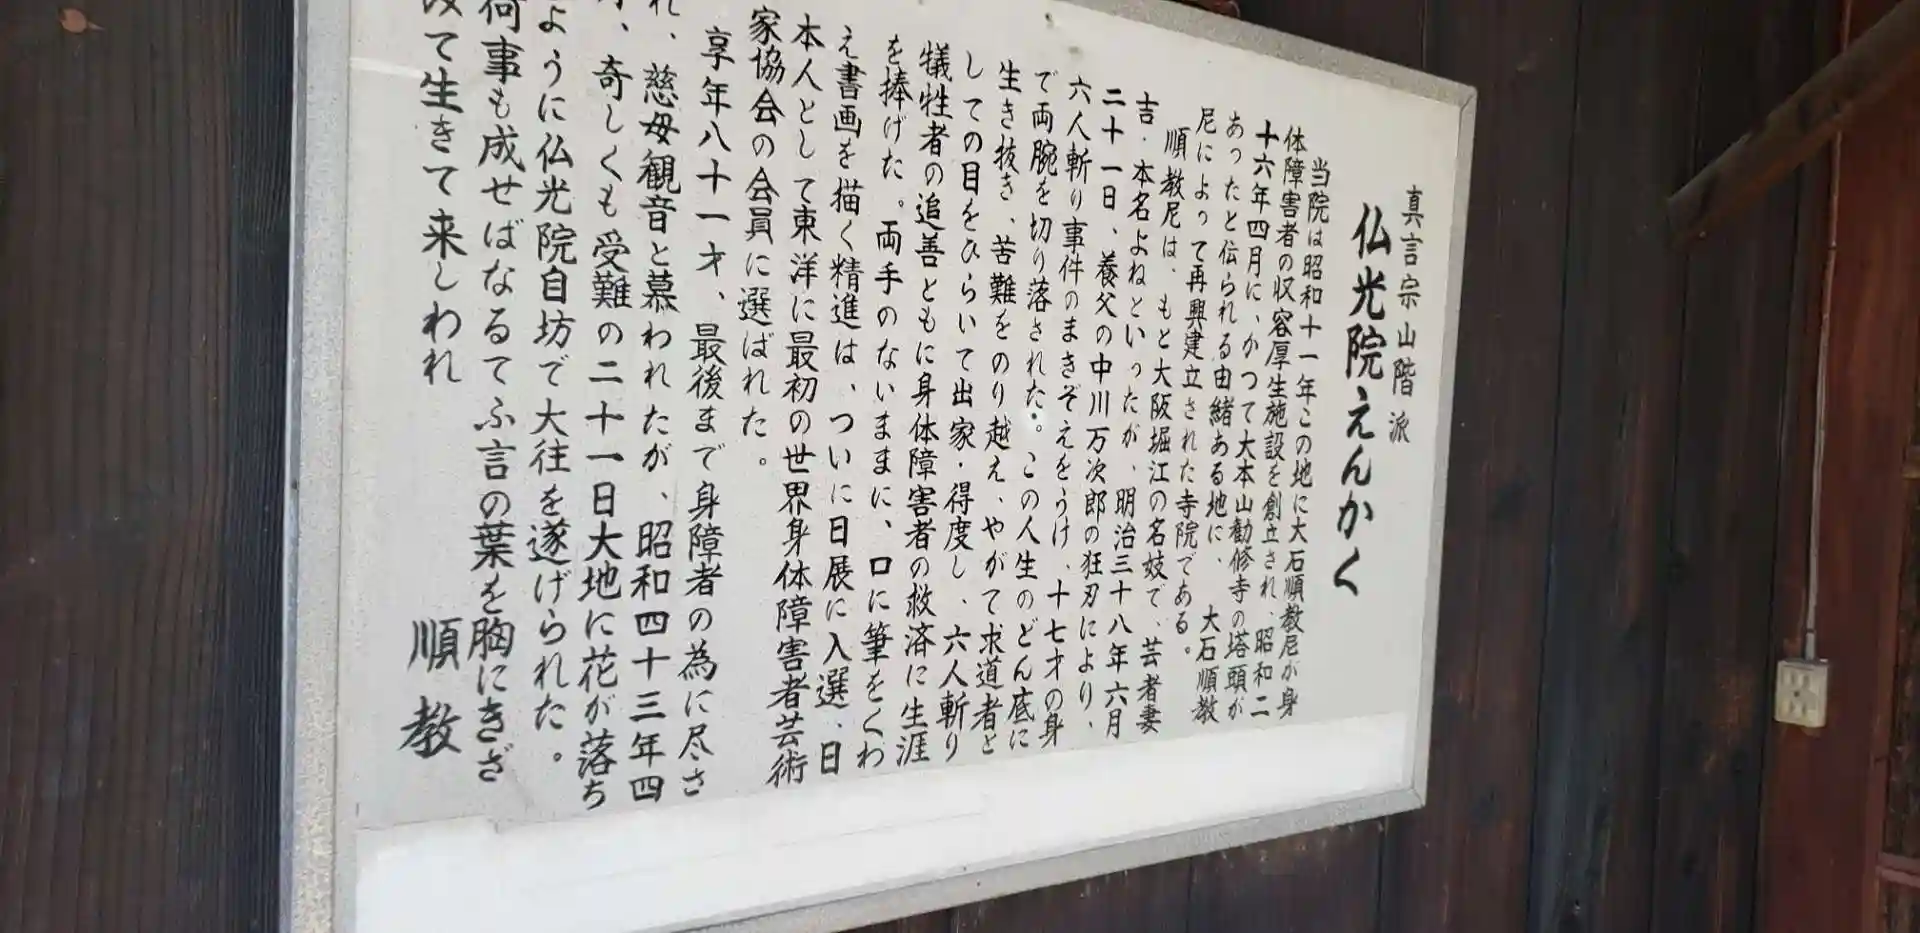 真言宗山階派
仏光院えんかく
当院は昭和十一年この地に大石順教尼が身
体障害者の収容厚生施設を創立され、昭和二
十六年四月に、かつて大本山勧修寺の塔頭が
あったと伝られる由緒ある地に、大石順教
尼によって再興建立された寺院である。
順教尼は、もと大阪堀江の名妓で、芸者妻
吉・本名よねといったが、明治三十八年六月
二十一日、養父の中川万次郎の狂刃により、
六人斬り事件のまきぞえをうけ、十七才の身
で両腕を切り落された。この人生のどん底に
生き抜き、苦難をのり越え、やがて求道者と
しての目をひらいて出家・得度し、六人斬り
犠牲者の追善ともに身体障害者の救済に生涯
を捧げた。両手のないままに、口に筆をくわ
え書画を描く精進は、ついに日展に入選、日
本人として東洋に最初の世界身体障害者芸術
家協会の会員に選ばれた。
享年八十一才、最後まで身障者の為に尽さ
れ、慈母観音と慕われたが、昭和四十三年四
、奇しくも受難の二十一日大地に花が落ち
ように仏光院自坊で大往を遂げられた。
何事も成せばなるてふ言の葉を胸にきざ
て生きて来しわれ
順教